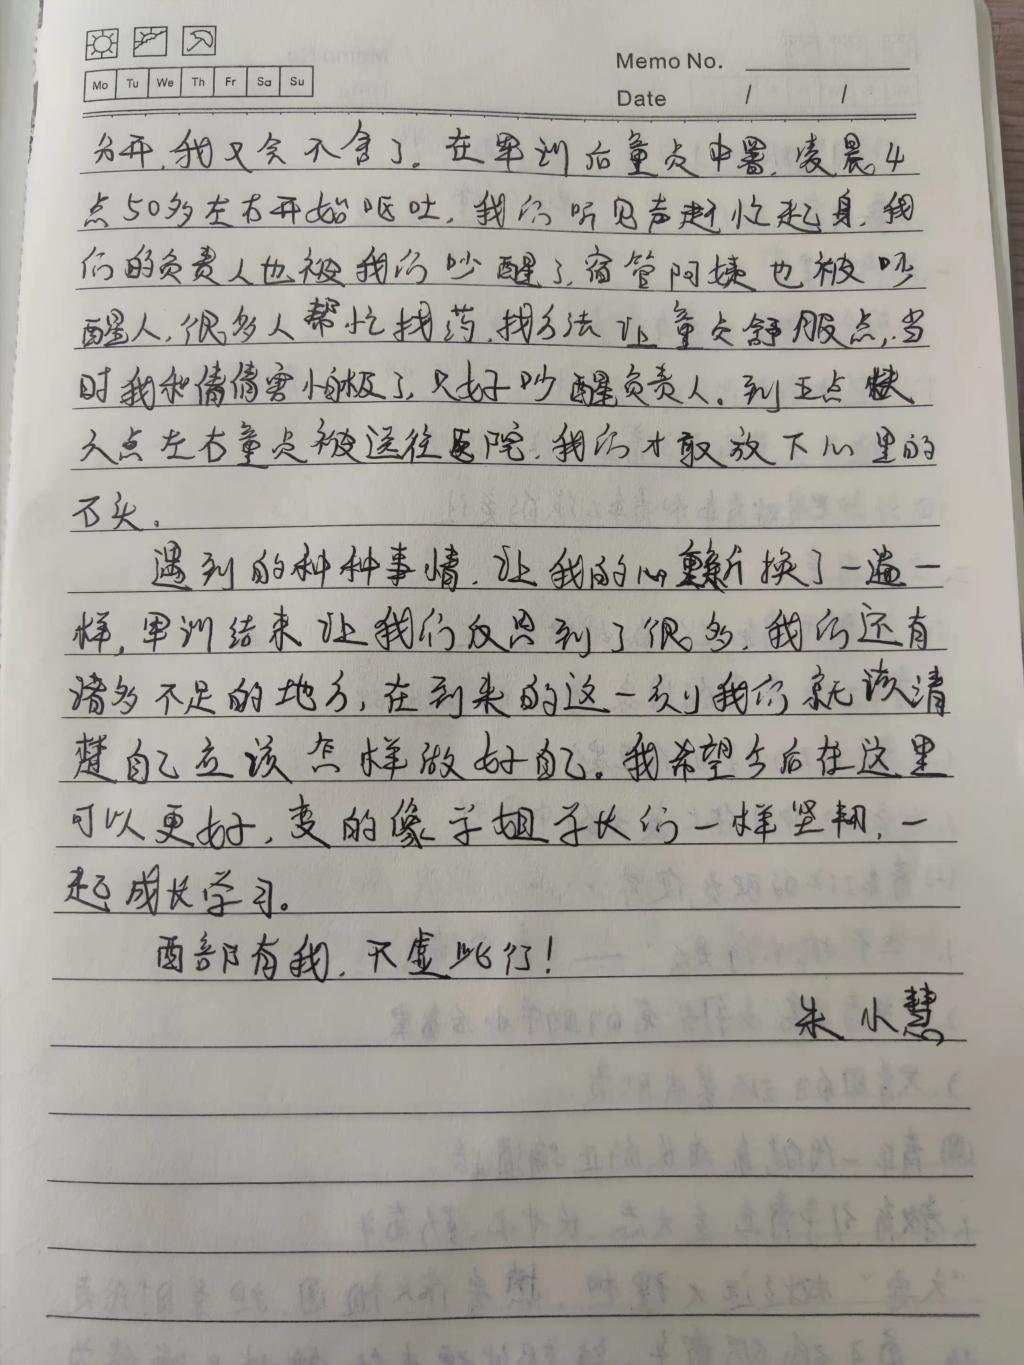 Mo Tu We Th Fr Sa Su
Memo No.
Date / /
分开,我又会不舍了。在军训后童贞中暑,凌晨4
点50多左右开始呕吐,我们听见声赶忙起身,我
们的负责人也被我们吵醒了,宿管阿姨也被吵
醒人,很多人帮忙找药,找方法让童贞舒服点,当
时我和倩倩害怕极了,只好吵醒负责人。到五点快
六点左右童贞被送往医院,我们才敢放下心里的
石头。
遇到的种种事情,让我的心重新换了一遍一
样,军训结束让我们反思到了很多,我们还有
诸多不足的地方,在到来的这一刻我们就该清
楚自己应该怎样做好自己。我希望今后在这里
可以更好,变的像学姐学长们一样坚韧,一
起成长学习。
酉部有我,不虚此行!
朱小慧